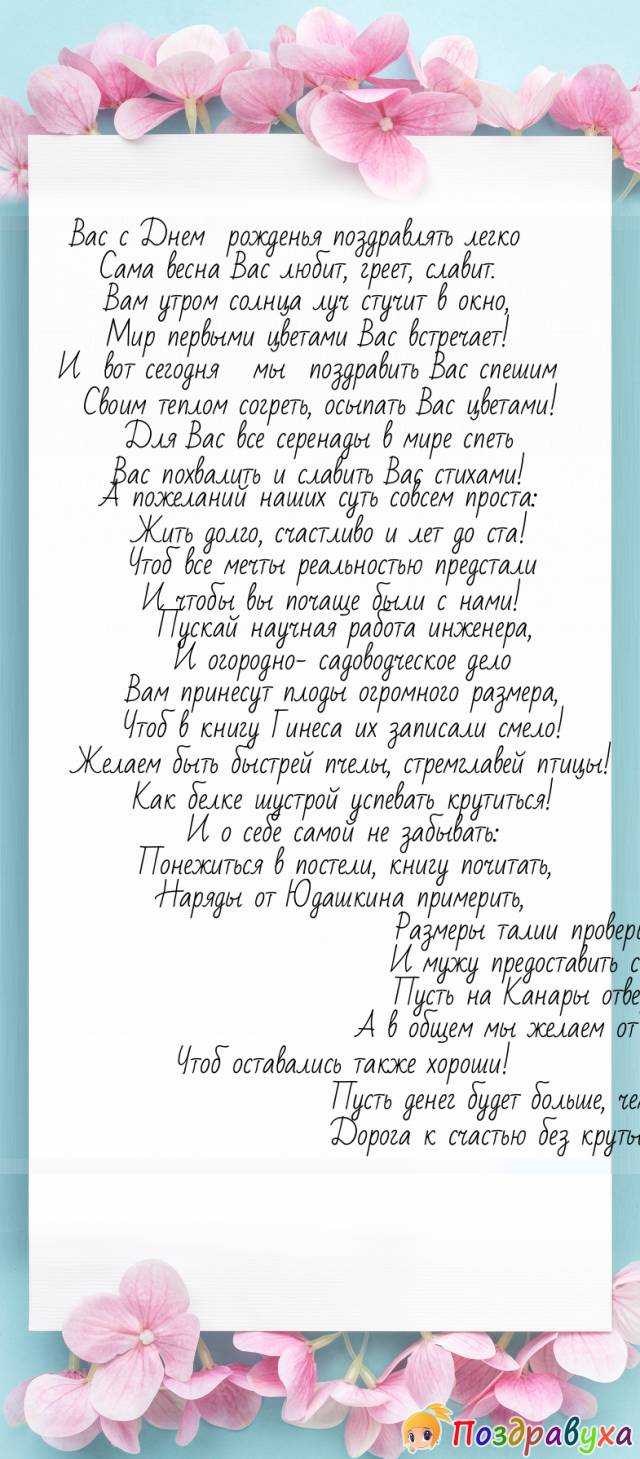 Вас с Днем рожденья поздравлять легко
Сама весна Вас любит, греет, славит.
Вам утром солнца луч стучит в окно,
Мир первыми цветами Вас встречает!
И вот сегодня мы поздравить Вас спешим
Своим теплом согреть, осыпать Вас цветами!
Для Вас все серенады в мире спеть
Вас похвалить и славить Вас стихами!
А пожеланий наших суть совсем проста:
Жить долго, счастливо и лет до ста!
Чтоб все мечты реальностью предстали
И чтобы вы почаще были с нами!
Пускай научная работа инженера,
И огородно- садоводческое дело
Вам принесут плоды огромного размера,
Чтоб в книгу Гинеса их записали смело!
Желаем быть быстрей пчелы, стремглавей птицы!
Как белке шустрой успевать крутиться!
И о себе самой не забывать:
Понежиться в постели, книгу почитать,
Наряды от Юдашкина примерить,
Размеры талии
И мужу предоставить
Пусть на Канары
А в общем мы желаем от
Чтоб оставались также хороши!
Пусть денег будет больше,
Дорога к счастью без
Поздравуха